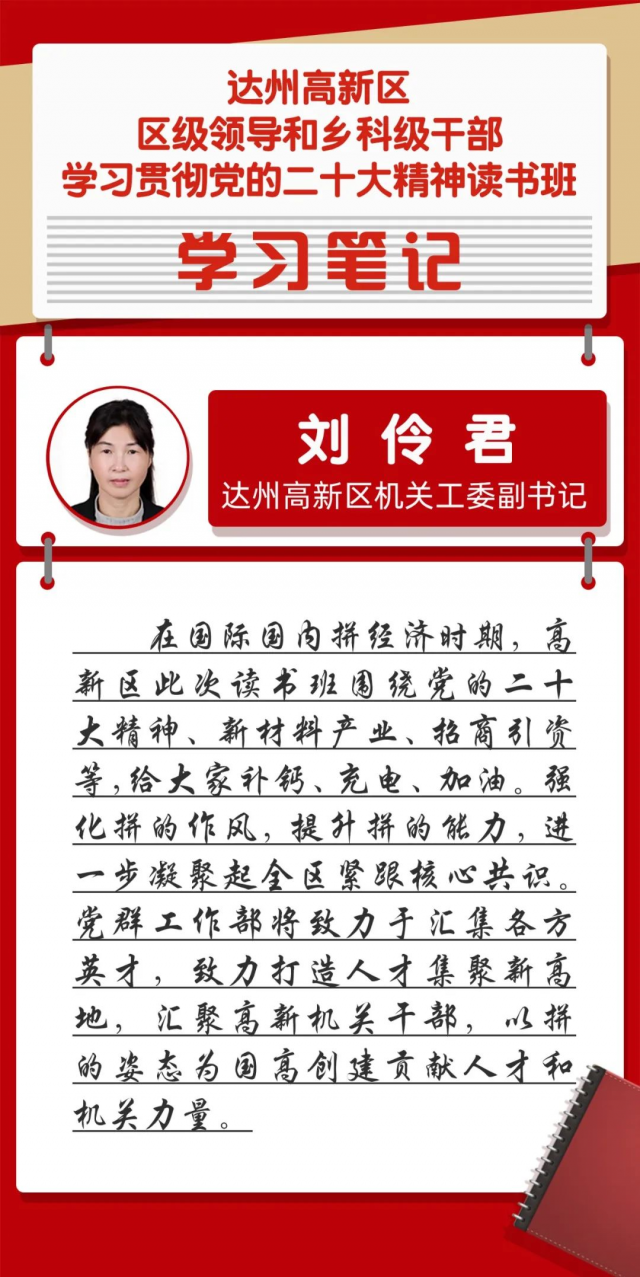 达州高新区
区级领导和乡科级干部
学习贯彻党的二十大精神读书班
学习笔记
刘伶君
达州高新区机关工委副书记
在国际国内拼经济时期，高
新区此次读书班围绕党的二十
大精神、新材料产业、招商引资
等，给大家补钙、充电、加油。强
化拼的作风，提升拼的能力，进
一步凝聚起全区紧跟核心共识。
党群工作部将致力于汇集各方
英才，致力打造人才集聚新高
地，汇聚高新机关干部，以拼
的姿态为国高创建贡献人才和
机关力量。